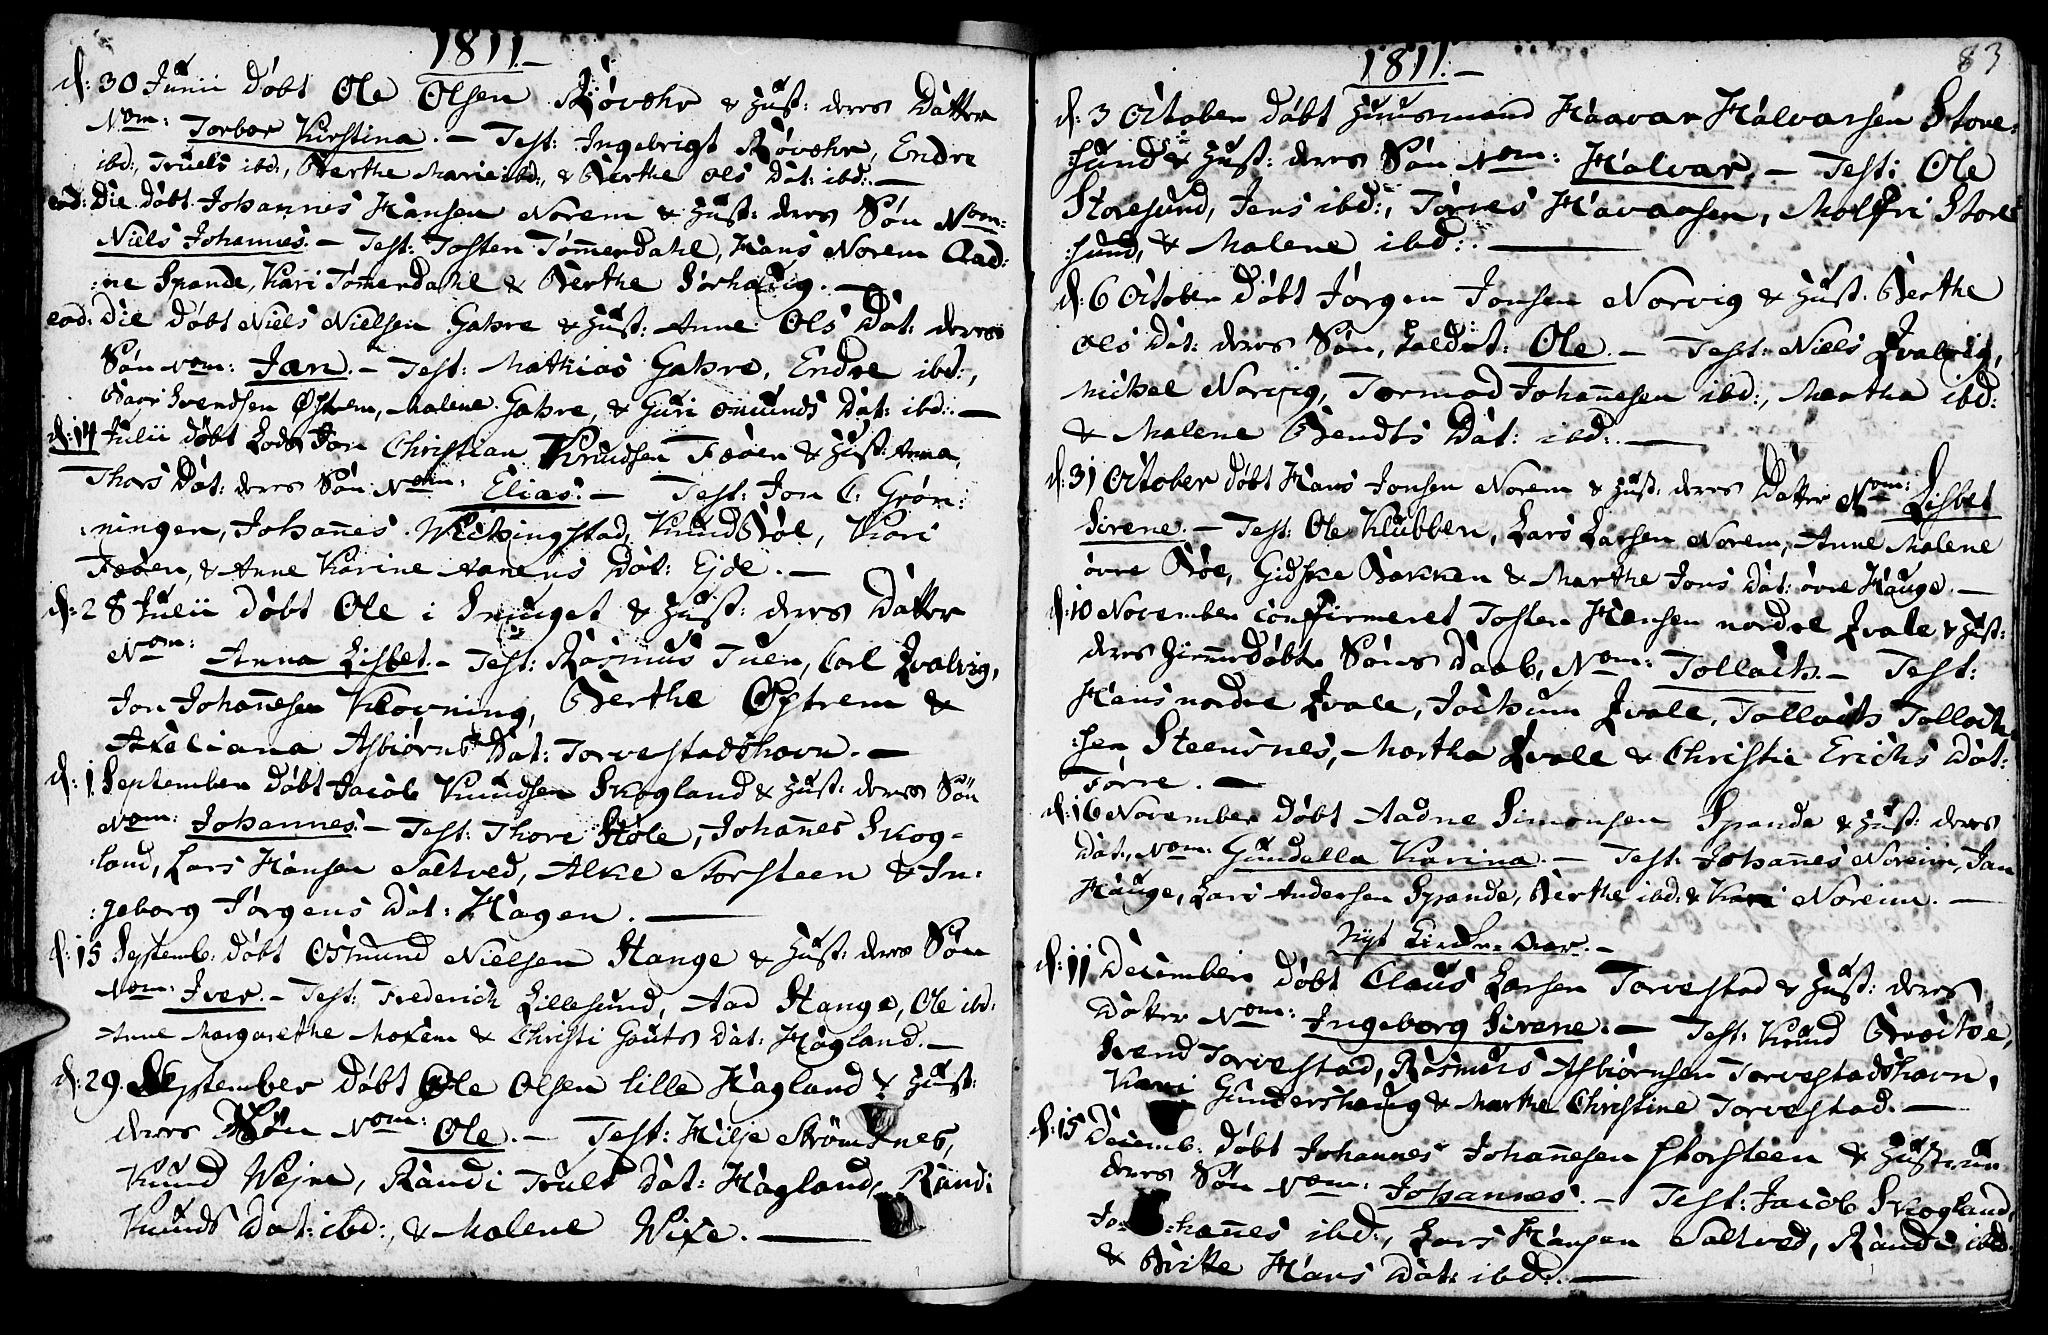 1811.—
d: 30 Junii døbt Ole Olsen Røvehr & Hust: deres Datter
Nom: Torbor Kirstina. — Test: Ingebrigt Røvehr, Endre
ibd:, Truels ibd:, Berthe Marie ibd:, & Berthe Ols Dat: ibd: —
eod: Die døbt Johannes Hansen Norem & Hust: deres Søn Nom:
Niels Johannes. — Test: Tosten Tømmerdahl, Hans Norem Aad:
:ne Spande, Kari Tømerdahl & Berthe Sørhaug. —
eod: Die døbt Niels Nielsen Gahre & Hust: Anne Ols Dat: deres
Søn Nom: Jan. — Test: Mathias Gahre, Endre ibd:,
Svendsen Østrem, Malene Gahre, & Guri Omunds Dat: ibd: —
d: 14 Julii døbt Christian Knudsen Føøen & Hust: Anna
Thors Dat: deres Søn Nom: Elias. — Test: Jon C: Grøn:
:ningen, Johannes Wichingstad, Knud Bøe, Kari
Føøen, & Anne Karine Hanens Dat: Ejde. —
d: 28 Julii døbt Ole i Smuget & Hust: deres Datter
Nom: Anna Lisbet. — Test: Rasmus Tuen, Carl Qvalvig,
Jon Johannesen Klovning, Berthe Østrem &
Axeliana Asbiørns Dat: Torvestadshavn. —
d: 1 September døbt Jacob Knudsen Skogland & Hust: deres Søn
Nom: Johannes. — Test: Thore Støle, Johannes Skog-
:land, Lars Hansen Saltved, Alke Storsteen & In:
:geborg Jørgens Dat: Hagen. —
d: 15 Septemb: døbt Osmund Nielsen Stange & Hust: deres Søn
Nom: Iver. — Test: Frederich Lillesund, Aad Stange, Ole ibd:
Anne Margarethe Moxem & Christi Gauts Dat: Hagland. —
d: 29 September døbt Ole Olsen lille Hagland & Hust:
deres Søn Nom: Ole. — Test: Hilje Strømsnes,
Knud Wejre, Randi Truls Dat: Hagland, Randi
Knuds Dat: ibd:, & Malene Wixe. —
1811. —
83
d: 3 October døbt Huusmand Haavar Halvarsen Store:
:sund & Hust: deres Søn Nom: Halvar. — Test: Ole
Storesund, Jens ibd:, Torres Havarsen, Molfri Store
:sund, & Malene ibd: —
d: 6 October døbt Jørgen Jonsen Norvig & Hust: Berthe
Ols Dat: deres Søn, kaldet: Ole. — Test: Niels Qvalvig,
Mickel Norvig, Tormod Johannesen ibd:, Martha ibd:
& Malene Bendts Dat: ibd: —
d: 31 October døbt Hans Jonsen Norem & Hust: deres Datter Nom: Lisbet
Sirene. — Test: Ole Klubben, Lars Larsen Norem, Anne Malene
øvre Bøe, Gidske Bakken & Marthe Jons Dat: øvre Hauge. —
d: 10 November confirmeret Tosten Hansen nordre Qvale & Hust:
deres hiemmedøbte Søns Daab, Nom: Tollach. — Test:
Hans nordre Qvale, Jochum Qvale, Tollach Tollach
:sen Steensnes, Martha Qvale & Christie Erichs Dat:
Førre. —
d: 16 November døbt Aadne Simonsen Spande & Hust: deres
Dat:, Nom: Gundella Karina. — Test: Johannes Noreim, Jan
Hauge, Lars Andersen Spande, Berthe ibd: & Kari Noreim. —
Nyt Kirke-Aar. —
d: 11 December døbt Claus Larsen Torvestad & Hust: deres
Datter Nom: Ingeborg Sirene. — Test: Knud Brecke,
Svend Torvestad, Rasmus Asbiørnsen Torvestadshavn,
Kari Gundershaug & Marthe Christine Torvestad. —
d: 15 Decemb: døbt Johannes Johannesen Storsteen & Hustrue
deres Søn Nom: Johannes. — Test: Jacob Skogland,
Jo: :hannes ibd:, Lars Hansen Saltved, Randi ibd:
& Britte Hans Dat: ibd: —